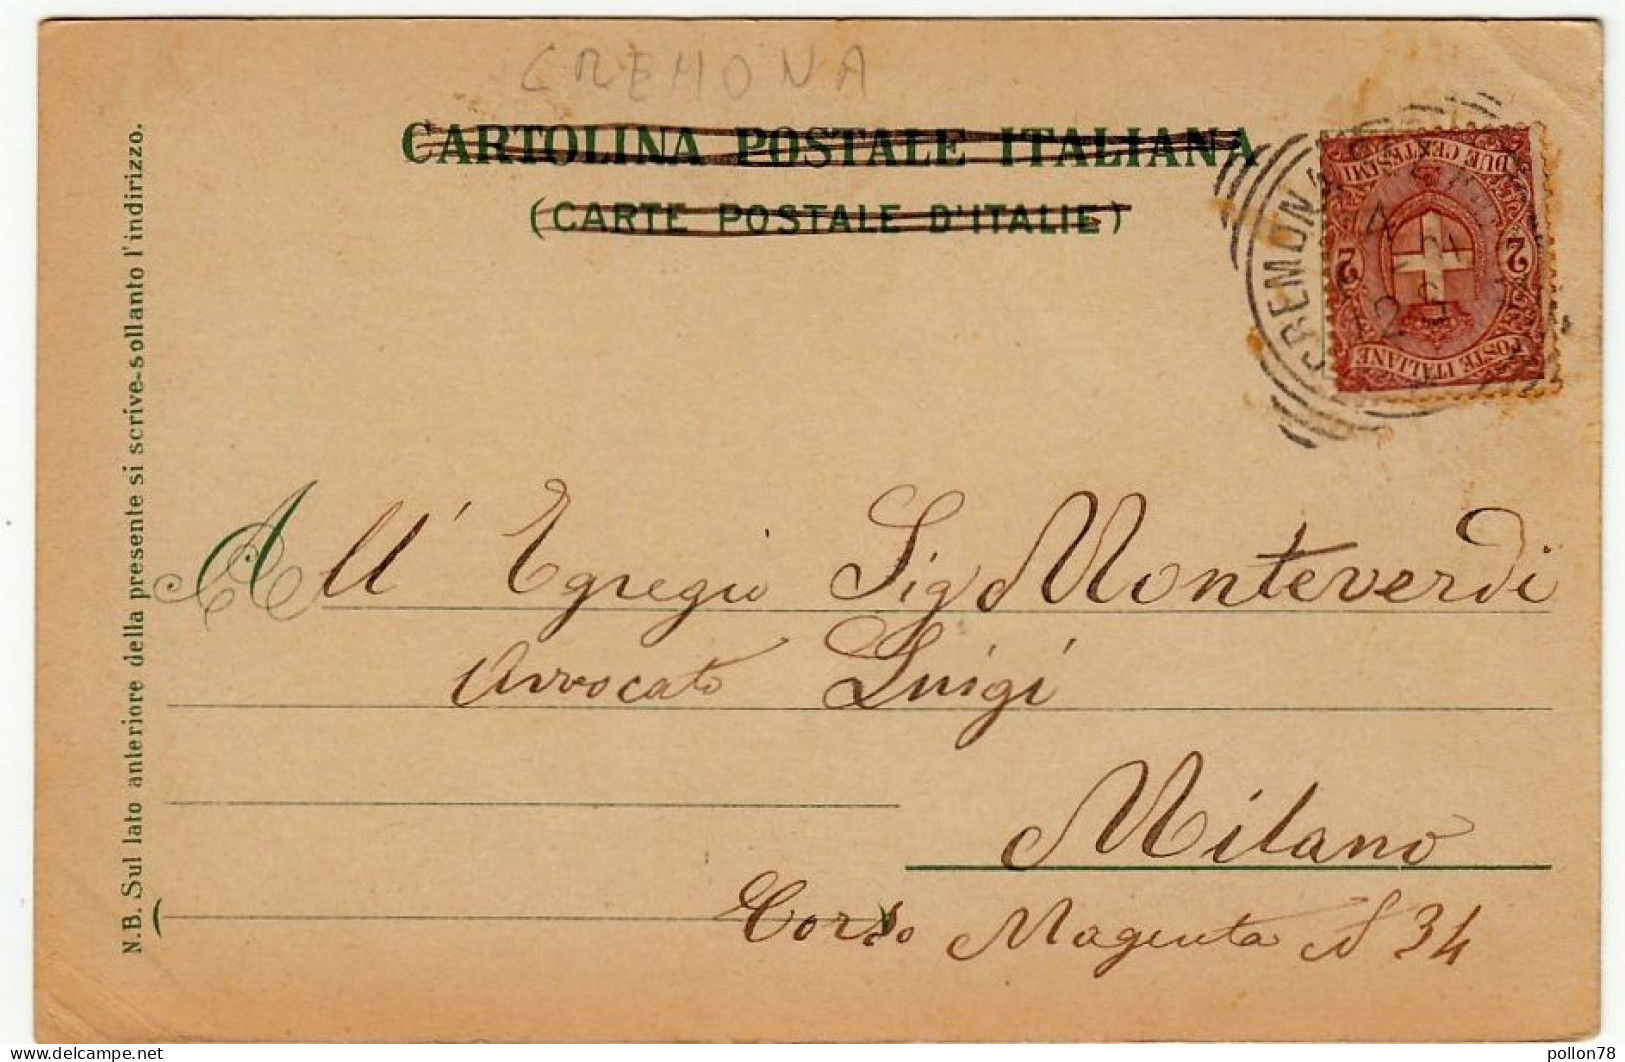 CREMONA
CARTOLINA POSTALE ITALIANA
(CARTE POSTALE D'ITALIE)
CREMONA
DUE CENTESIMI
2 2
POSTE ITALIANE
N.B. Sul lato anteriore della presente si scrive-sollanto l'indirizzo.
All' Egregio Sig Monteverdi
Avvocato Luigi
Milano
Corso Magenta N 34
www.delcampe.net
pollon78